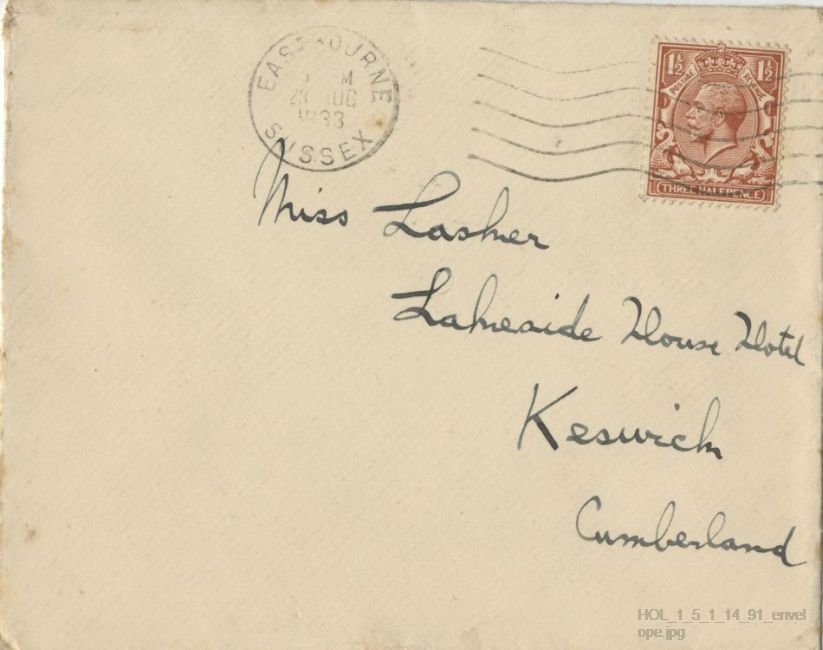 EASTBOURNE
23 AUG
1933
SUSSEX
1½ 1½
POSTAGE REVENUE
THREE HALFPENCE
Miss Lasker
Lakeside House Hotel
Keswick
Cumberland
HOL_1_5_1_14_91_envel
ope.jpg